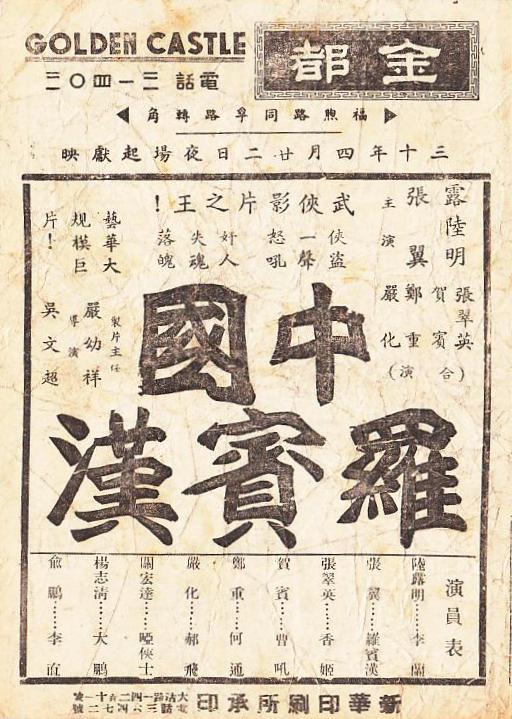 GOLDEN CASTLE
金都
電話 三一四〇二
福煦路同孚路轉角
三十年四月廿二日夜場起獻映
武俠影片之王!
俠盜一聲怒吼
奸人失魂落魄
藝華大規模巨片!
主演
陸明露
張翼
張翠英
賀賓
鄭重
嚴化
(合演)
製片主任
嚴幼祥
導演
吳文超
中國
羅賓漢
演員表
陸露明……李蘭
張翼……羅賓漢
張翠英……香姬
賀賓……曹吼
鄭重……何通
嚴化……郝飛
關宏達……啞俠士
楊志清……大鵬
俞鵬……李直
新華印刷所承印